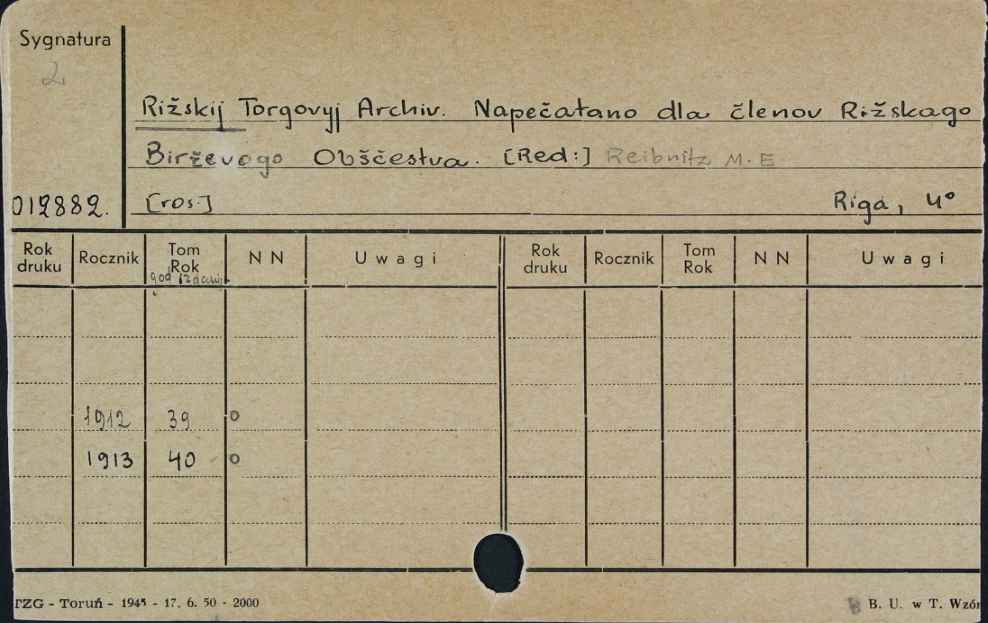 Sygnatura
2
Rižskij Torgovyj Archiv. Napečatano dla členov Rižskago
Birževogo Obščestva. [Red:] Reibnitz M. E
012882. [ros.] Riga, 4°
Rok druku Rocznik Tom Rok N N Uwagi Rok druku Rocznik Tom Rok N N Uwagi
god izdanij
1912 39 o
1913 40 o
TZG - Toruń - 1945 - 17. 6. 50 - 2000 B. U. w T. Wzór